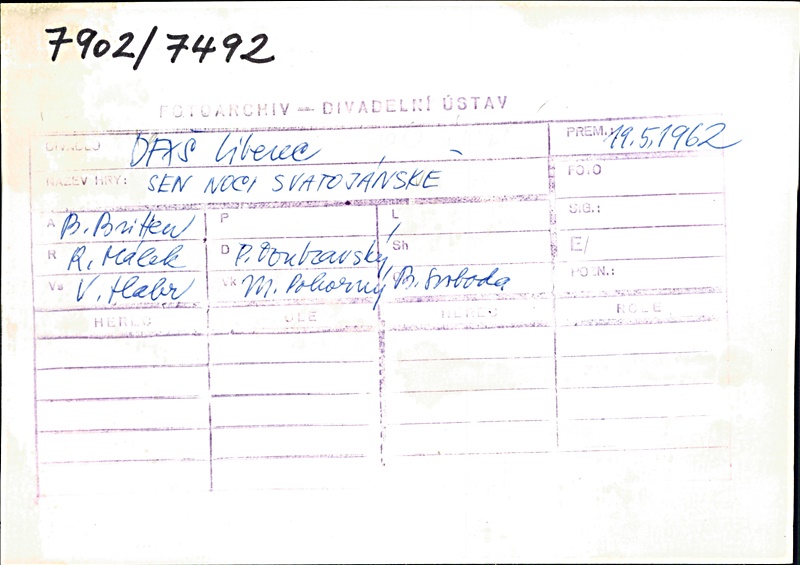 7902/7492
FOTOARCHIV — DIVADELNÍ ÚSTAV
DIVADLO DFXŠ Liberec PREM.: 19.5.1962
NÁZEV HRY: SEN NOCI SVATOJÁNSKÉ FOTO
A B. Britten P L SIG.:
R R. Málek D P. Doubravský Sh E/
Vs V. Habr Vk M. Pokorný B. Svoboda POZN.:
HEREC ROLE HEREC ROLE